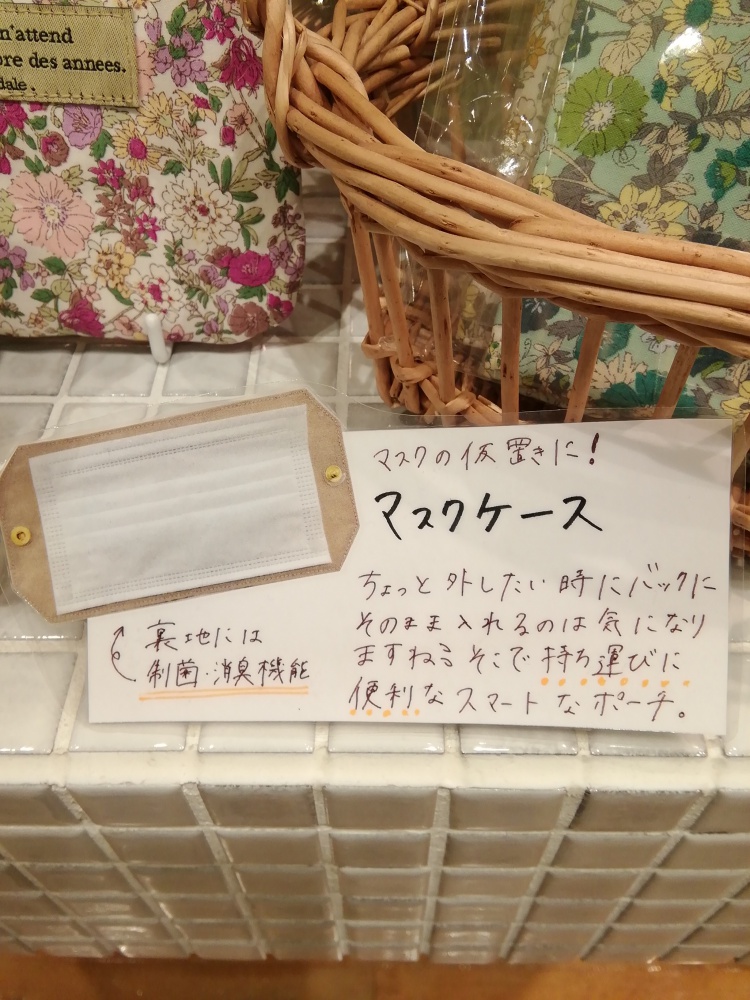 n'attend
ore des années.
dale.
マスクの仮置きに!
マスクケース
ちょっと外したい時にバックに
そのまま入れるのは気になり
ますねっそこで持ち運びに
便利なスマートなポーチ。
裏地には
制菌・消臭機能